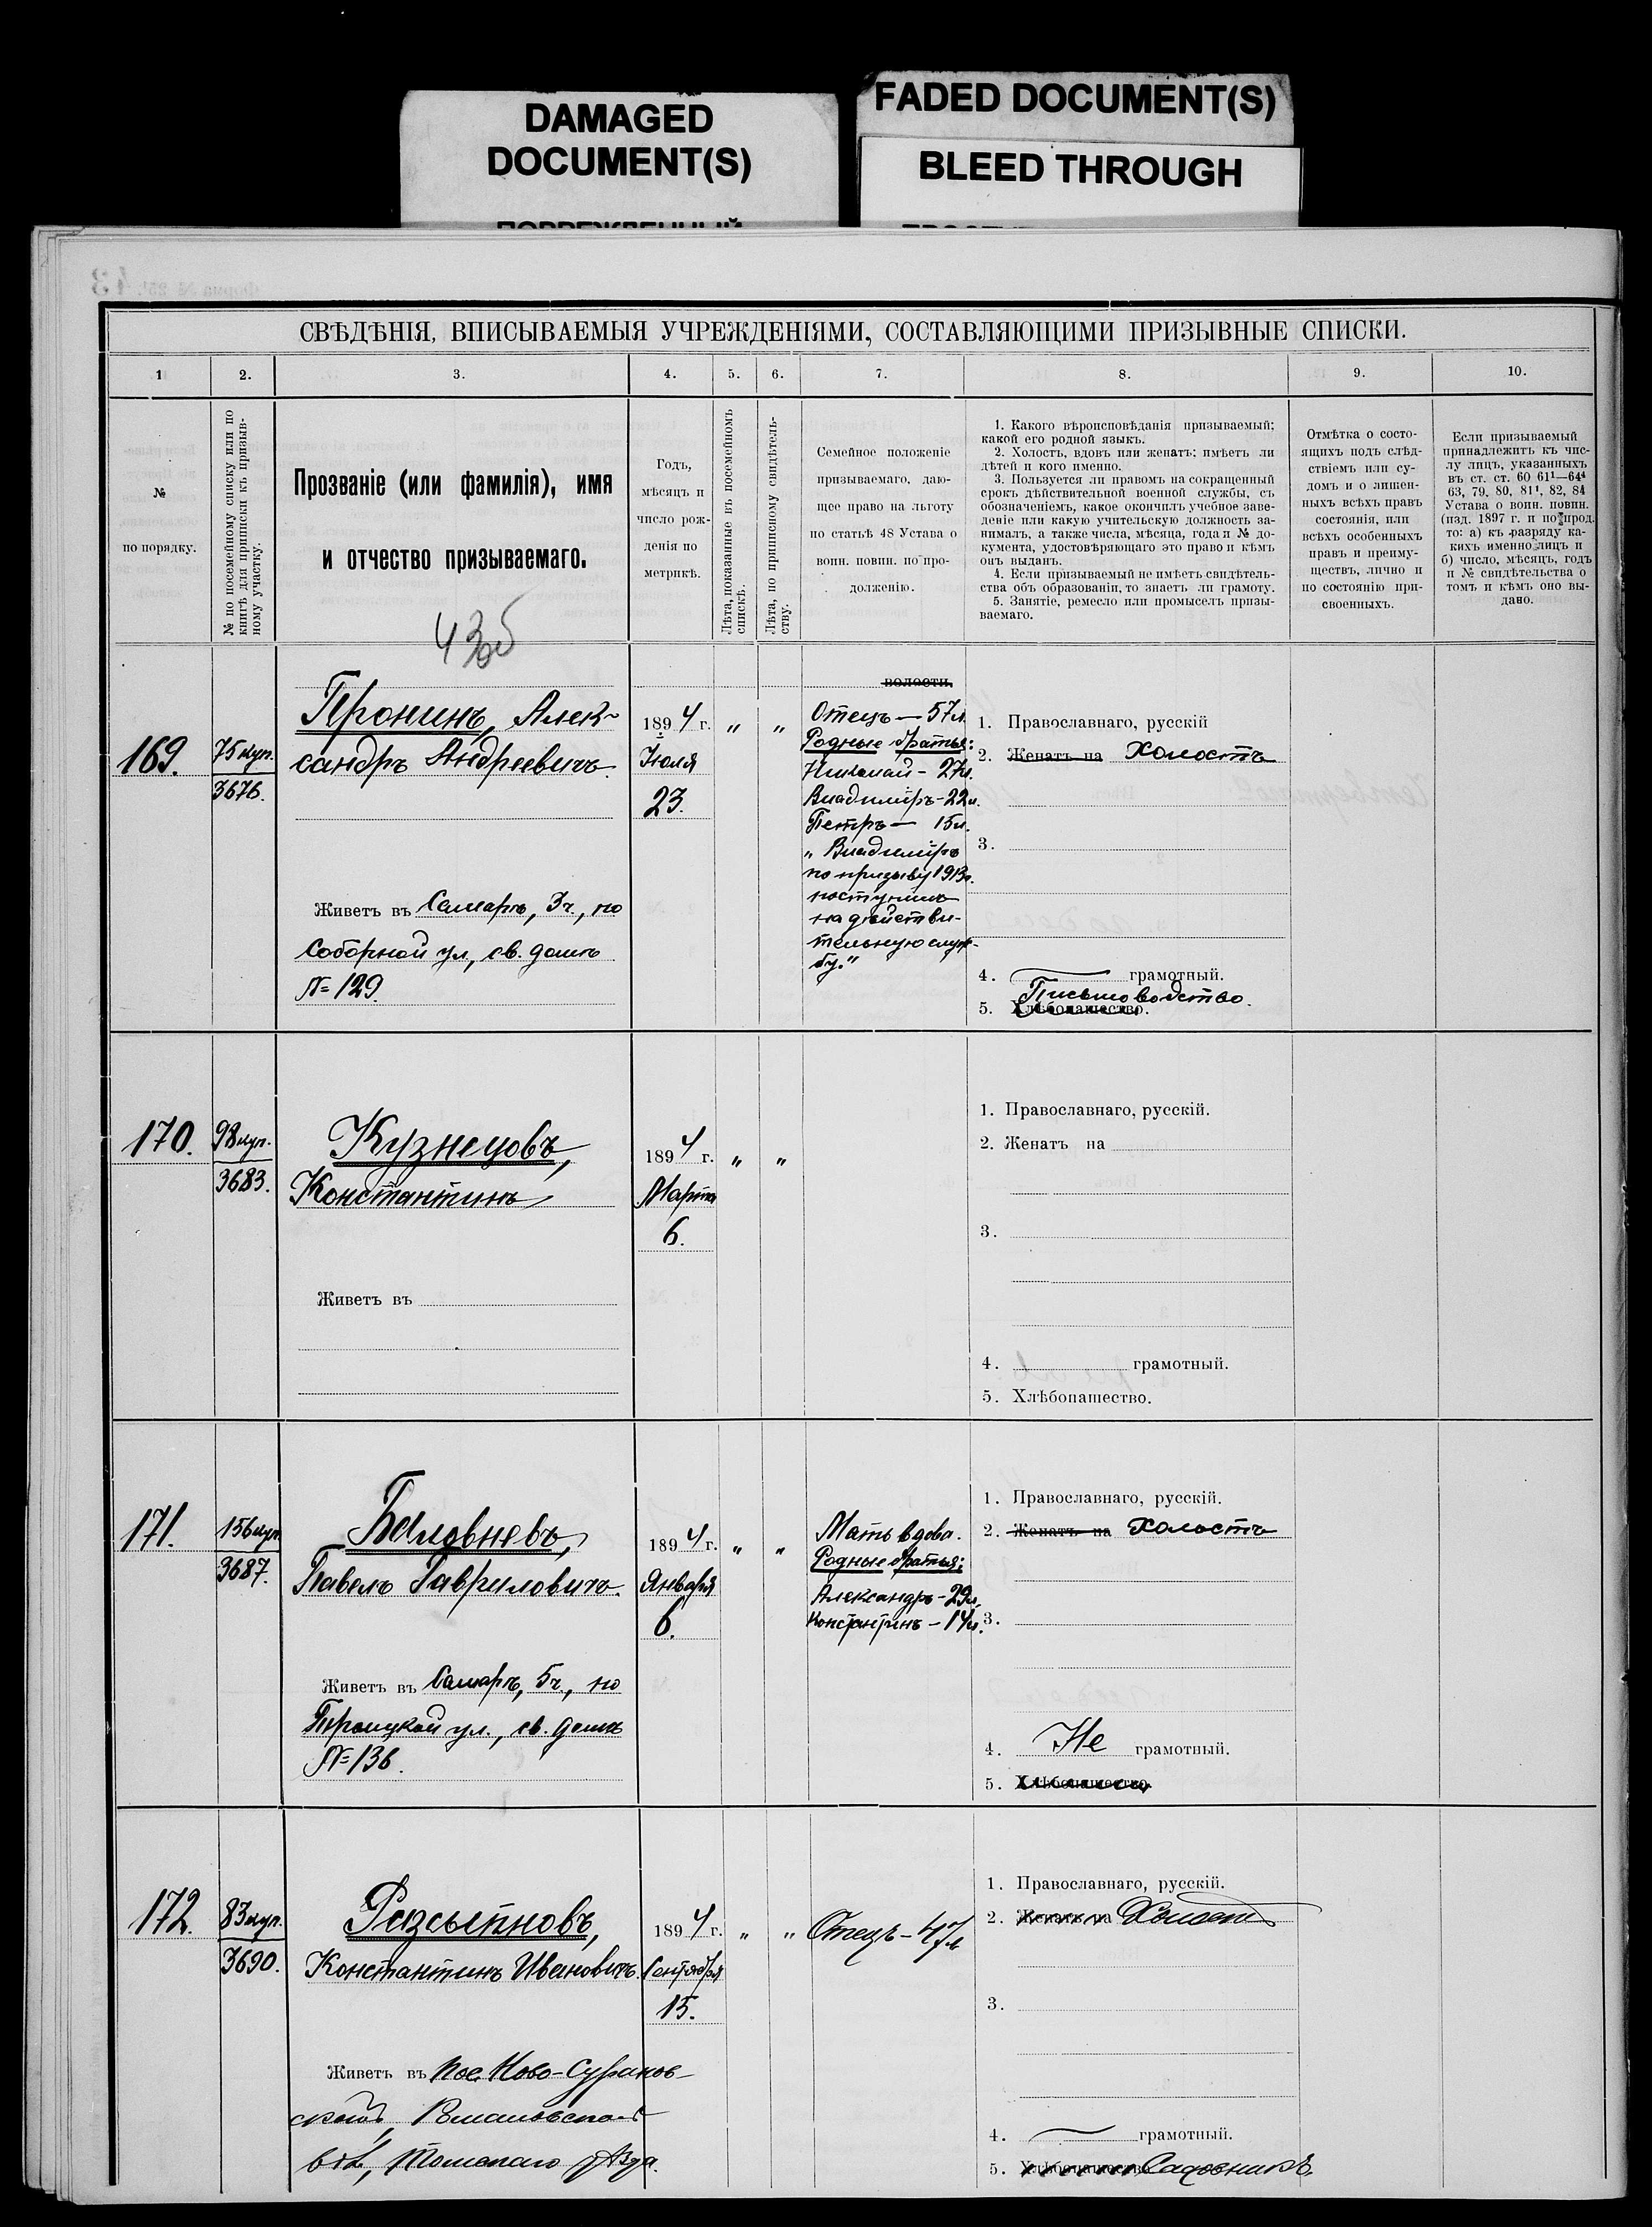 DAMAGED
DOCUMENT(S)
FADED DOCUMENT(S)
BLEED THROUGH
СВѢДѢНІЯ, ВПИСЫВАЕМЫЯ УЧРЕЖДЕНІЯМИ, СОСТАВЛЯЮЩИМИ ПРИЗЫВНЫЕ СПИСКИ.
1
2.
3.
4.
5.
6.
7.
8.
9.
10.
№
по порядку.
№ по посемейному списку или по
книгѣ для приписки къ призыв-
ному участку.
Прозваніе (или фамилія), имя
и отчество призываемаго.
Годъ,
мѣсяцъ и
число рож-
денія по
метрикѣ.
Лѣта, показанные въ посемейномъ
спискѣ.
Лѣта, по приписному свидѣтель-
ству.
Семейное положеніе
призываемаго, даю-
щее право на льготу
по статьѣ 48 Устава о
воин. повин. по про-
долженію.
1. Какого вѣроисповѣданія призываемый;
какой его родной языкъ.
2. Холостъ, вдовъ или женатъ; имѣетъ ли
дѣтей и кого именно.
3. Пользуется ли правомъ на сокращенный
срокъ дѣйствительной военной службы, съ
обозначеніемъ, какое окончилъ учебное заве-
деніе или какую учительскую должность за-
нималъ, а также числа, мѣсяца, года и № до-
кумента, удостовѣряющаго это право и кѣмъ
онъ выданъ.
4. Если призываемый не имѣетъ свидѣтель-
ства объ образованіи, то знаетъ ли грамоту.
5. Занятіе, ремесло или промыселъ призы-
ваемаго.
Отмѣтка о состо-
ящихъ подъ слѣд-
ствіемъ или су-
домъ и о лишен-
ныхъ всѣхъ правъ
состоянія, или
всѣхъ особенныхъ
правъ и преиму-
ществъ, лично и
по состоянію при-
своенныхъ.
Если призываемый
принадлежитъ къ чис-
лу лицъ, указанныхъ
въ ст. ст. 60 61¹—64⁴
63, 79, 80, 81¹, 82, 84
Устава о воин. повин.
(изд. 1897 г. и по прод.
то: а) къ разряду ка-
кихъ именно лицъ и
б) число, мѣсяцъ, годъ
и № свидѣтельства о
томъ и кѣмъ оно вы-
дано.
43об
169.
75 куп.
3676.
Пронинъ, Алек-
сандръ Андреевичъ.
Живетъ въ Самарѣ, 3ч., по
Соборной ул., св. домъ
№ 129.
1894 г.
Іюля
23.
„
„
волости.
Отецъ — 57л.
Родные братья:
Николай - 27л.
Владиміръ - 22л.
Петръ — 15л.
„Владиміръ
по призыву 1913г.
поступилъ
на дѣйстви-
тельную служ-
бу."
1. Православнаго, русскій
2. Женатъ на Холостъ
3.
4. грамотный.
Письмоводство.
5. Хлѣбопашество.
170.
98 куп.
3683.
Кузнецовъ,
Константинъ
Живетъ въ
1894 г.
Марта
6.
„
„
1. Православнаго, русскій.
2. Женатъ на
3.
4. грамотный.
5. Хлѣбопашество.
171.
156 куп.
3687.
Баловневъ,
Павелъ Гавриловичъ.
Живетъ въ Самарѣ, 5ч., по
Троицкой ул., св. домъ
№ 136.
1894 г.
Января
6.
„
„
Мать вдова.
Родные братья:
Александръ - 29л.
Константинъ - 14л.
1. Православнаго, русскій.
2. Женатъ на Холостъ
3.
4. Не грамотный.
5. Хлѣбопашество
172.
83 куп.
3690.
Разсыпновъ,
Константинъ Ивановичъ.
Живетъ въ пос. Ново-
1894 г.
Сентября
15.
„
„
Отецъ - 47л
1. Православнаго, русскій.
2. Женатъ на Холостъ
3.
4. грамотный.
5. Хлѣбопашество Садовникъ.